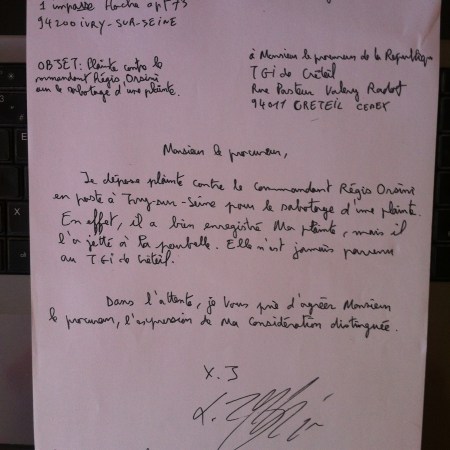 1 impasse Hoche apt 73
94200 IVRY-SUR-SEINE
OBJET: Plainte contre le
commandant Régis Orsini
sur le sabotage d'une plainte.
à Monsieur le procureur de la République
TGI de Créteil
Rue Pasteur Valery Radot
94011 CRETEIL CEDEX
Monsieur le procureur,
Je dépose plainte contre le commandant Régis Orsini
en poste à Ivry-sur-Seine pour le sabotage d'une plainte.
En effet, il a bien enregistré Ma plainte, mais il
l'a jetté à la poubelle. Elle n'est jamais parvenu
au TGI de Créteil.
Dans l'attente, je vous prie d'agréer Monsieur
le procureur, l'expression de Ma considération distinguée.
X.J